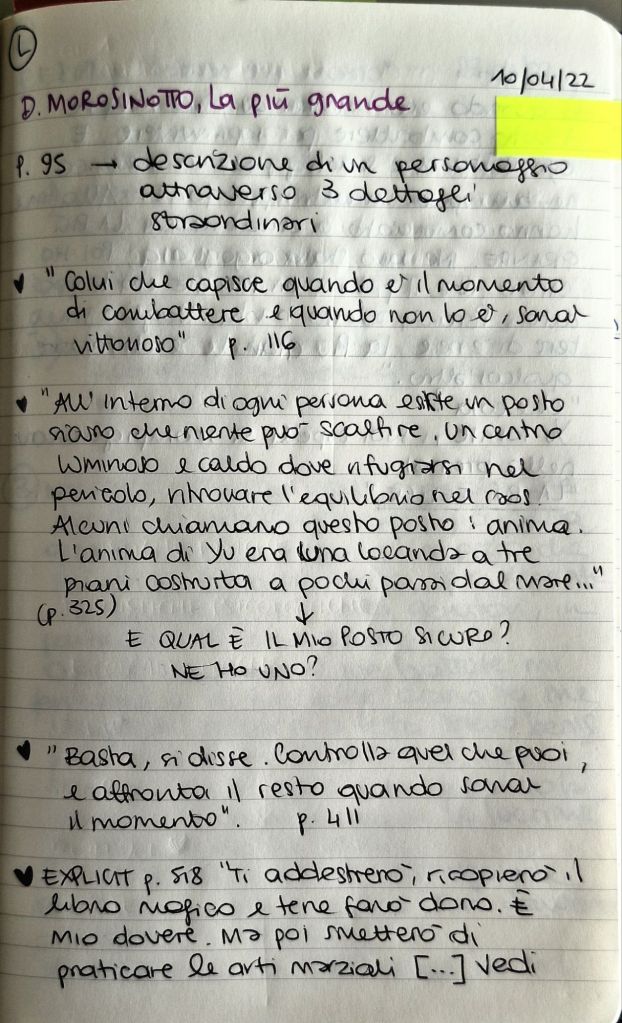 L
10/04/22
D. MOROSINOTTO, La più grande
p. 95 → descrizione di un personaggio
attraverso 3 dettagli
straordinari
♥ "Colui che capisce quando è il momento
di combattere e quando non lo è, sarà
vittorioso" p. 116
♥ "All'interno di ogni persona esiste un posto
sicuro che niente può scalfire. Un centro
luminoso e caldo dove rifugiarsi nel
pericolo, ritrovare l'equilibrio nel caos.
Alcuni chiamano questo posto: anima.
L'anima di Yu era una locanda a tre
piani costruita a pochi passi dal mare..."
(p. 325) ↓
E QUAL È IL MIO POSTO SICURO?
NE HO UNO?
♥ "Basta, si disse. Controlla quel che puoi,
e affronta il resto quando sarà
il momento". p. 411
♥ EXPLICIT p. 518 "Ti addestrerò, ricopierò il
libro magico e te ne farò dono. È
mio dovere. Ma poi smetterò di
praticare le arti marziali [...] Vedi